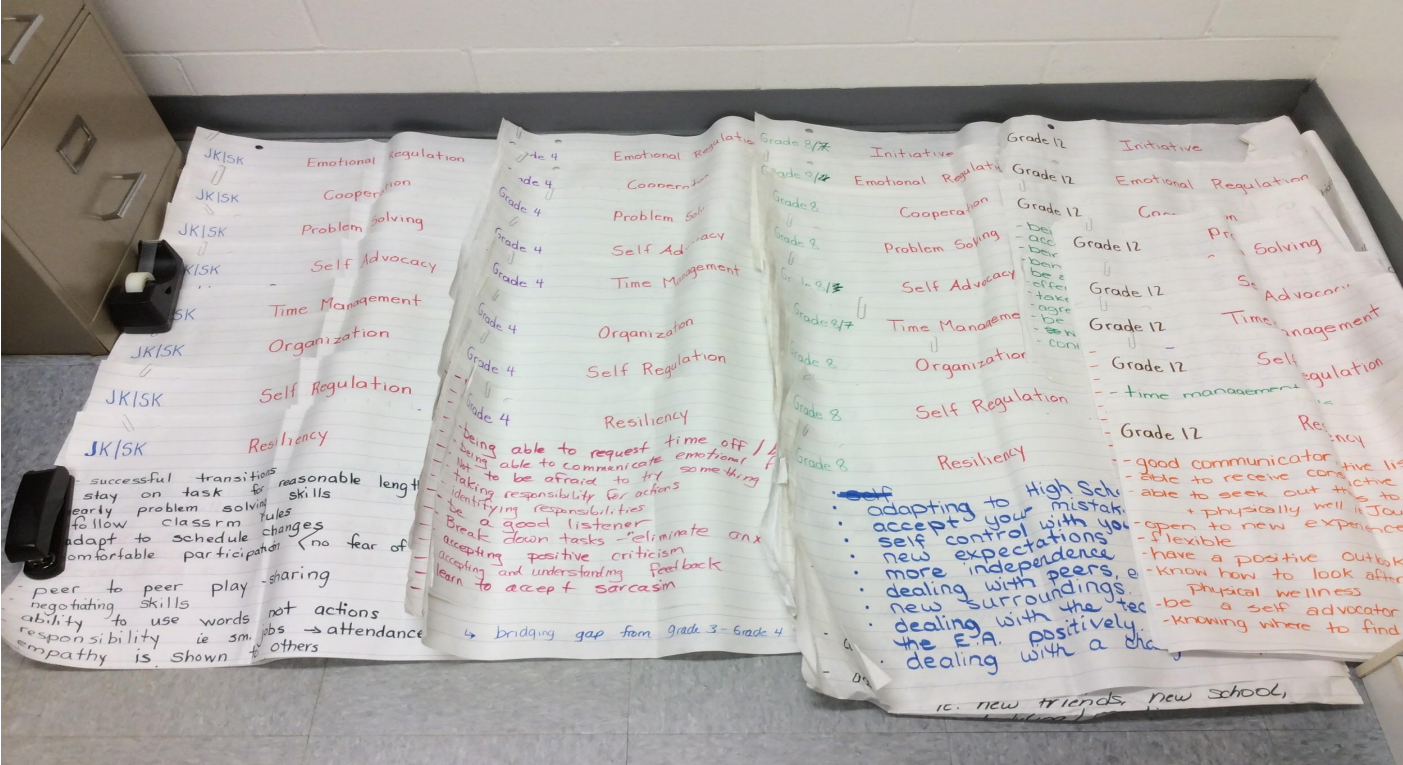 JK/SK Emotional Regulation
JK/SK Cooperation
JK/SK Problem Solving
JK/SK Self Advocacy
SK Time Management
JK/SK Organization
JK/SK Self Regulation
JK/SK Resiliency
- successful transitions
stay on task for reasonable lengt
early problem solving skills
follow classrm rules
adapt to schedule changes
omfortable participation (no fear of
- peer to peer play - sharing
- negotiating skills
ability to use words not actions
responsibility ie sm. jobs → attendance
empathy is shown to others
de 4 Emotional Regulatio
ade 4 Cooperat
Grade 4 Problem Sol
Grade 4 Self Advocacy
Grade 4 Time Management
Grade 4 Organization
Grade 4 Self Regulation
Grade 4 Resiliency
- being able to request time off /
- being able to communicate emotional
- Not to be afraid to try something
- taking responsibility for actions
- identifying responsibilities
- be a good listener
- Break down tasks - eliminate anx
- accepting positive criticism
- accepting and understanding feedback
- learn to accept sarcasm
↳ bridging gap from grade 3 - Grade 4
Grade 8/7 Initiative
Grade 8 Emotional Regulati
Grade 8 Cooperation
Grade 8 Problem Solving
Self Advocacy
Grade 8/7 Time Manageme
Grade 8 Organization
Grade 8 Self Regulation
Grade 8 Resiliency
• self
• adapting to High Sch
• accept your mistak
• self control with you
• new expectations
• more independence
• dealing with peers, e
• new surroundings.
• dealing with the tec
the E.A. positively.
• dealing with a cha
ie. new friends, new school,
Grade 12 Initiative
Grade 12 Emotional Regulation
Grade 12
- bei
- acc
- bein
- be
- offe
- take
- agre
- be
- con
Grade 12 Solving
Grade 12 Advoca
Grade 12 Time anagement
Grade 12 Self egulation
- time management
Grade 12 Res ncy
- good communicator
- able to receive
- able to seek out
+ physically well
- open to new experience
- flexible
- have a positive outlook
- know how to look after
physical wellness
- be a self advocator
- knowing where to find